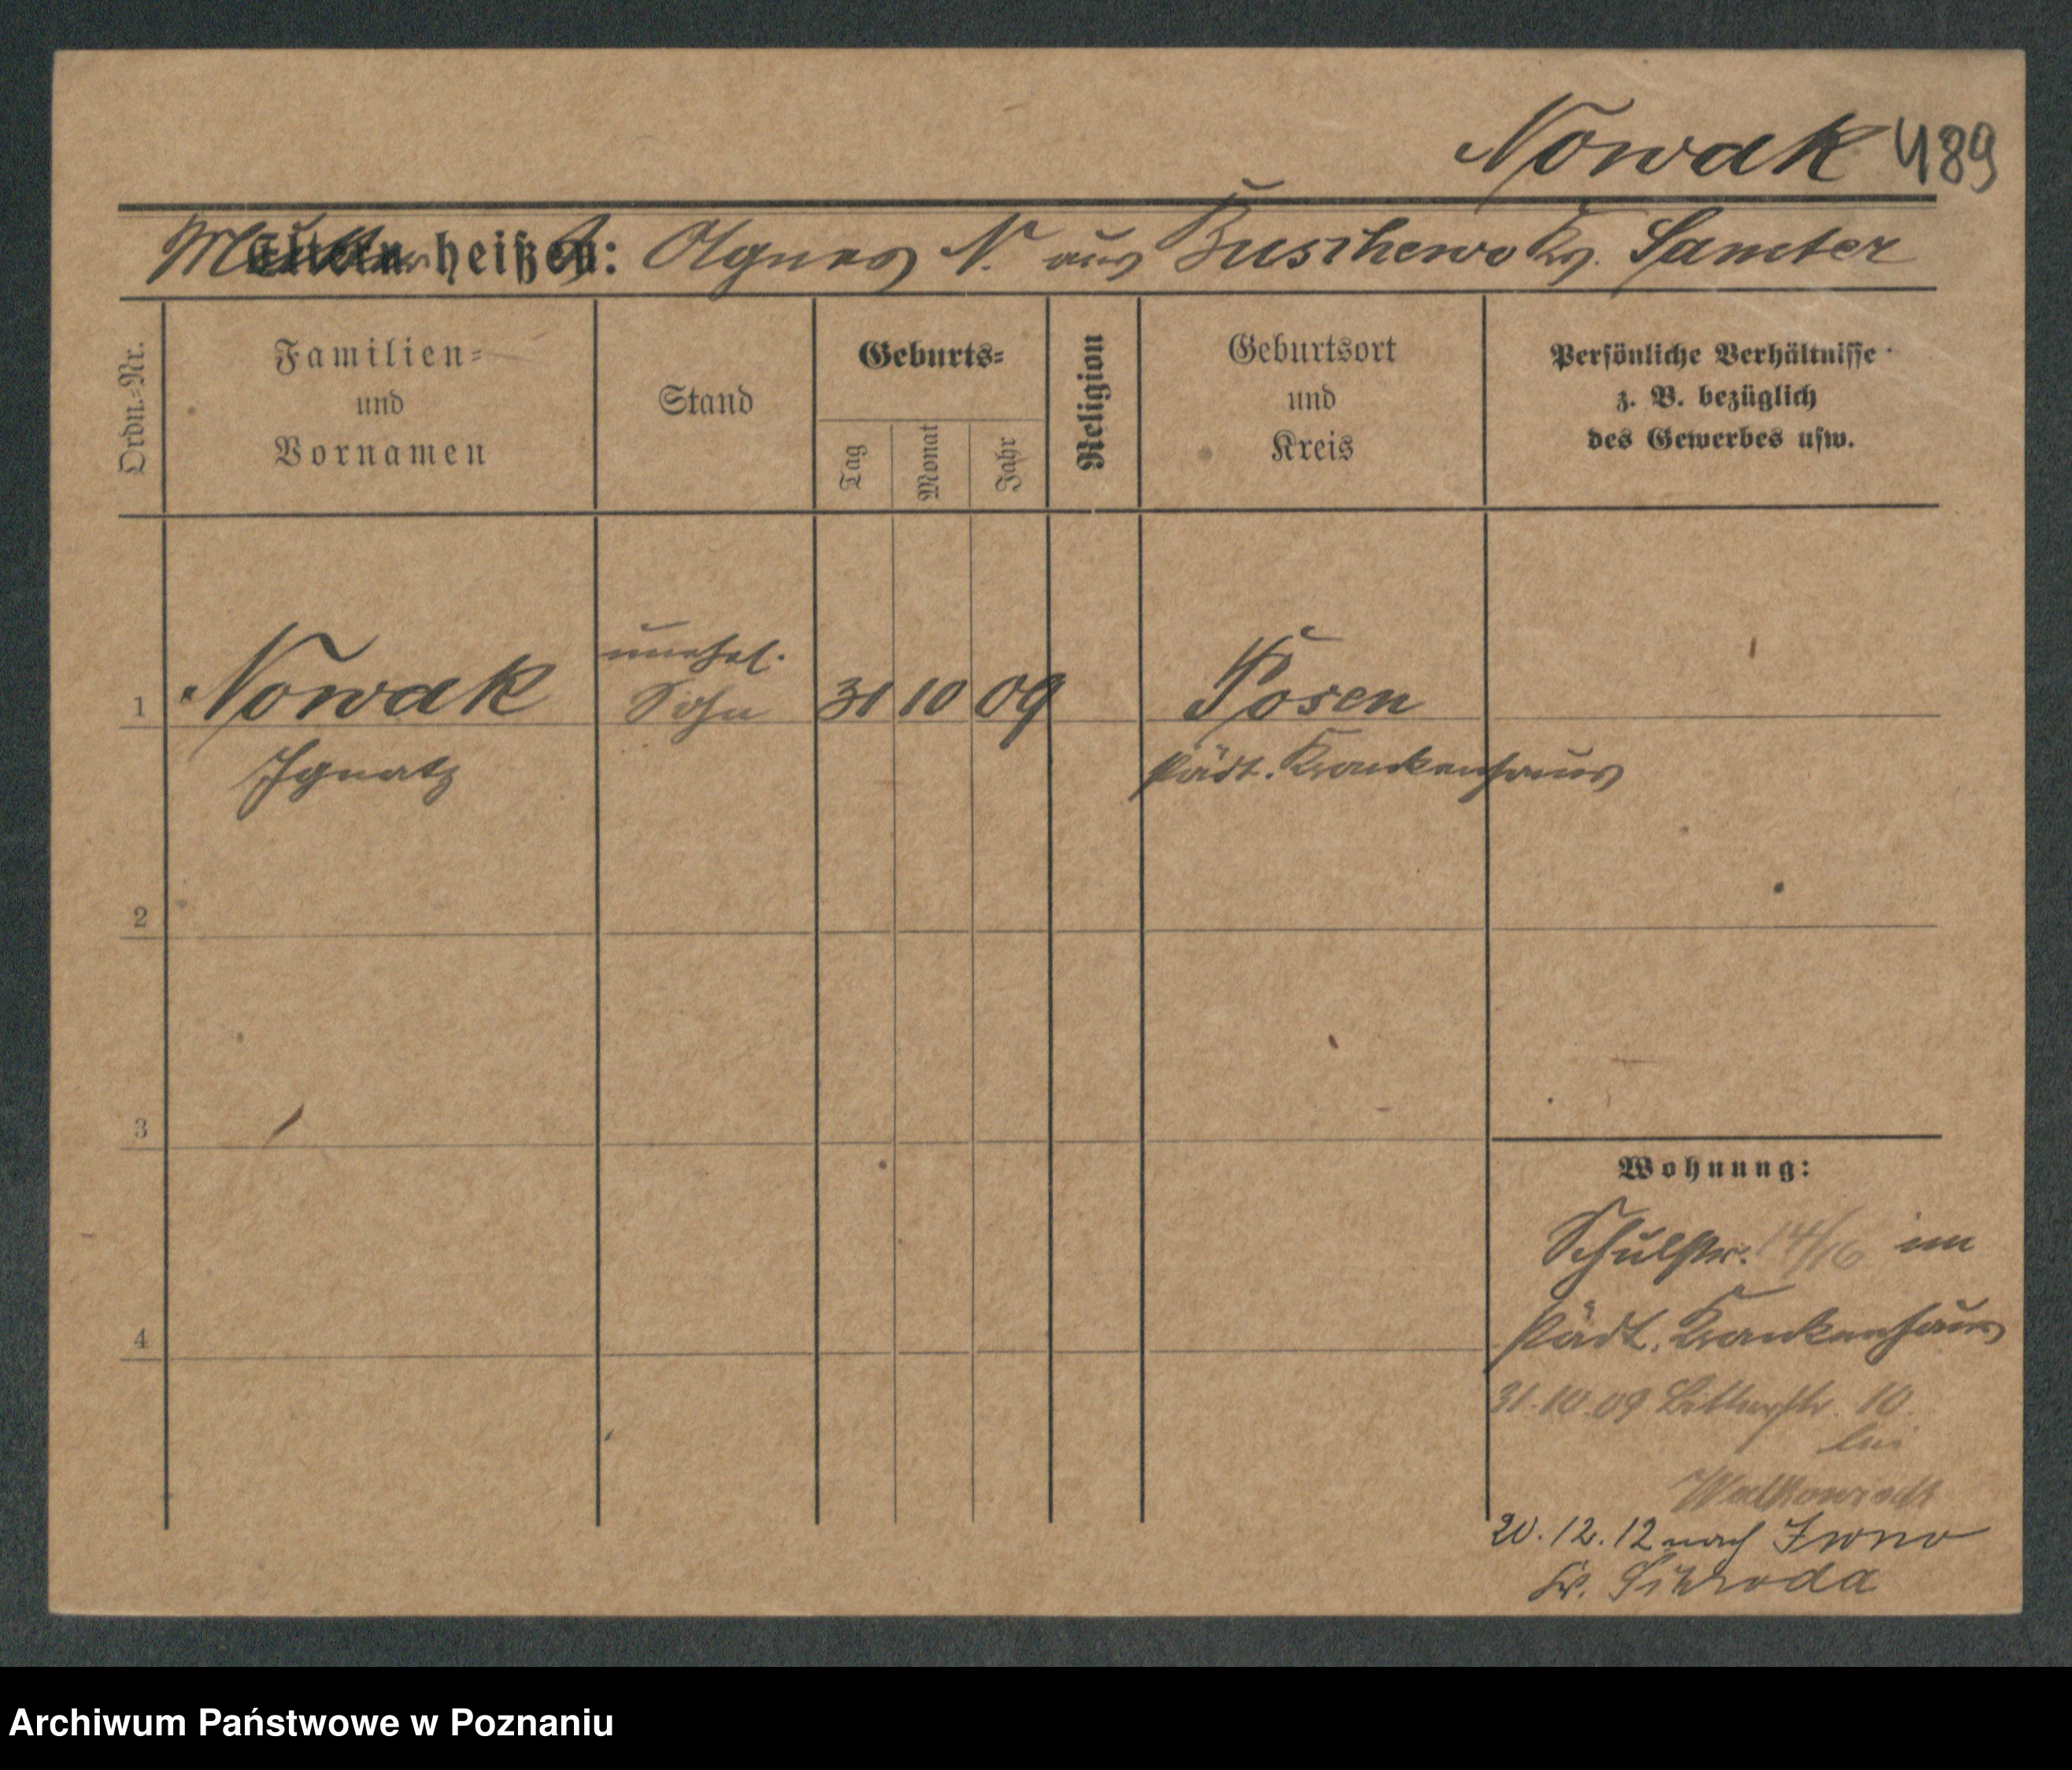 Nowak 489
Mutter heißt: Agnes N. aus Buschewo Kr. Samter
Ordn.-Nr.
Familien-
und
Vornamen
Stand
Geburts-
Tag
Monat
Jahr
Religion
Geburtsort
und
Kreis
Persönliche Verhältnisse
z. B. bezüglich
des Gewerbes usw.
1 Nowak unehel. Sohn 31 10 09 Posen
Ignatz städt. Krankenhaus
2
3
4
Wohnung:
Schulstr. 14/16 im
städt. Krankenhaus
31.10.09 10.
bei
20.12.12 nach Iwno
Kr. Schroda
Archiwum Państwowe w Poznaniu